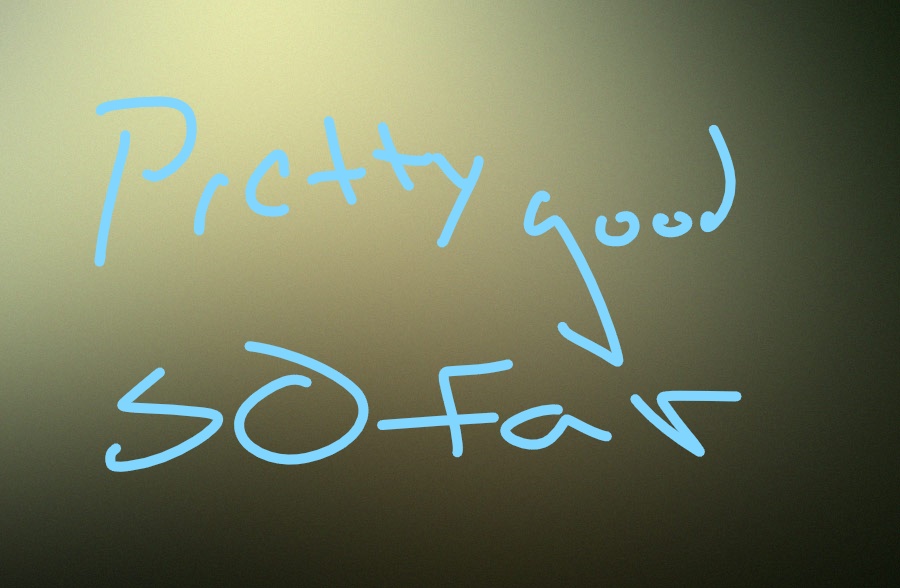 Pretty good
so far